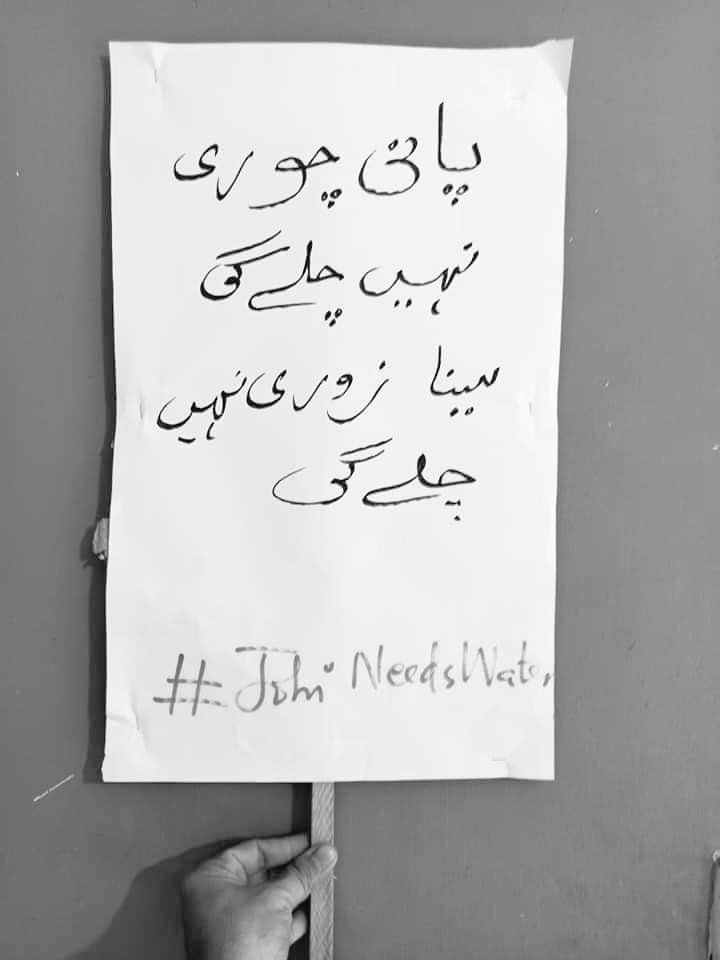 پانی چوری
نہیں چلے گی
سینا زوری نہیں
چلے گی
#JohiNeedsWater